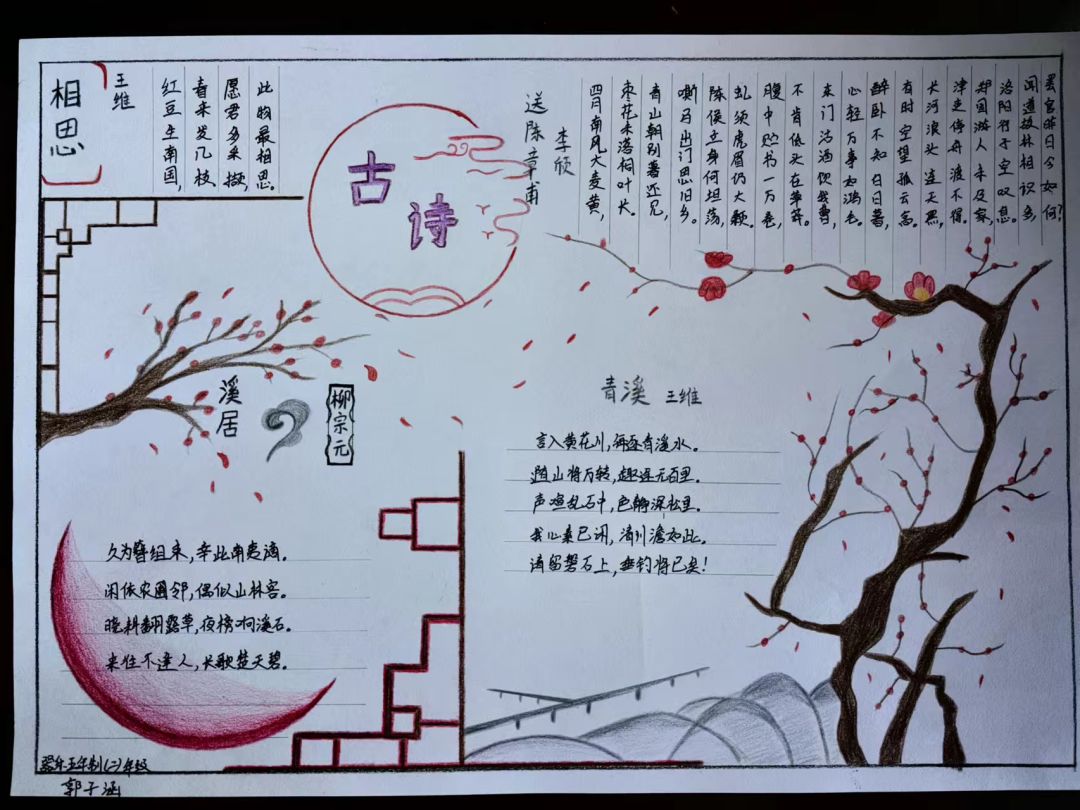 相思
王维
红豆生南国，
春来发几枝。
愿君多采撷，
此物最相思。
古诗
送陈章甫
李颀
四月南风大麦黄，
枣花未落桐叶长。
青山朝别暮还见，
嘶马出门思旧乡。
陈侯立身何坦荡，
虬须虎眉仍大颡。
腹中贮书一万卷，
不肯低头在草莽。
东门沽酒饮我曹，
心轻万事如鸿毛。
醉卧不知白日暮，
有时空望孤云高。
长河浪头连天黑，
津吏停舟渡不得。
郑国游人未及家，
洛阳行子空叹息。
闻道故林相识多，
罢官昨日今如何？
溪居
柳宗元
久为簪组束，幸此南夷谪。
闲依农圃邻，偶似山林客。
晓耕翻露草，夜榜响溪石。
来往不逢人，长歌楚天碧。
青溪 王维
言入黄花川，每逐青溪水。
随山将万转，趣途无百里。
声喧乱石中，色静深松里。
我心素已闲，清川澹如此。
请留磐石上，垂钓将已矣！
五年制(二)年级
郭子涵